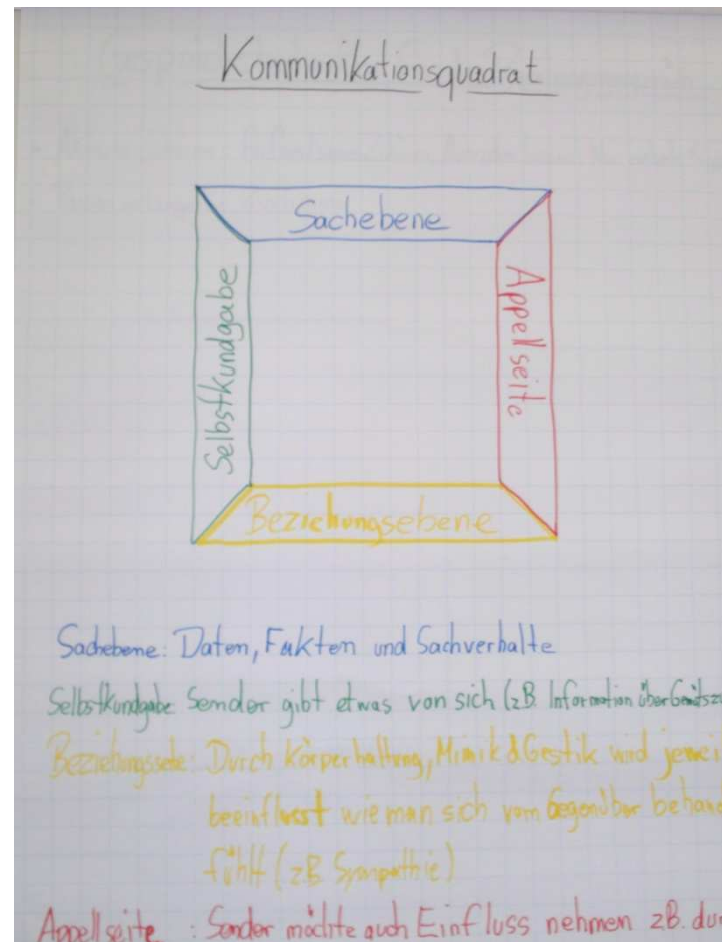 Kommunikationsquadrat
Sachebene
Selbstkundgabe
Appellseite
Beziehungsebene
Sachebene: Daten, Fakten und Sachverhalte
Selbstkundgabe Sender gibt etwas von sich (zB. Information über
Durch Körperhaltung, Mimik & Gestik wird
beeinflusst wie man sich vom Gegenüber
fühlt (zB Sympathie)
Appellseite : Sender möchte auch Einfluss nehmen zB.